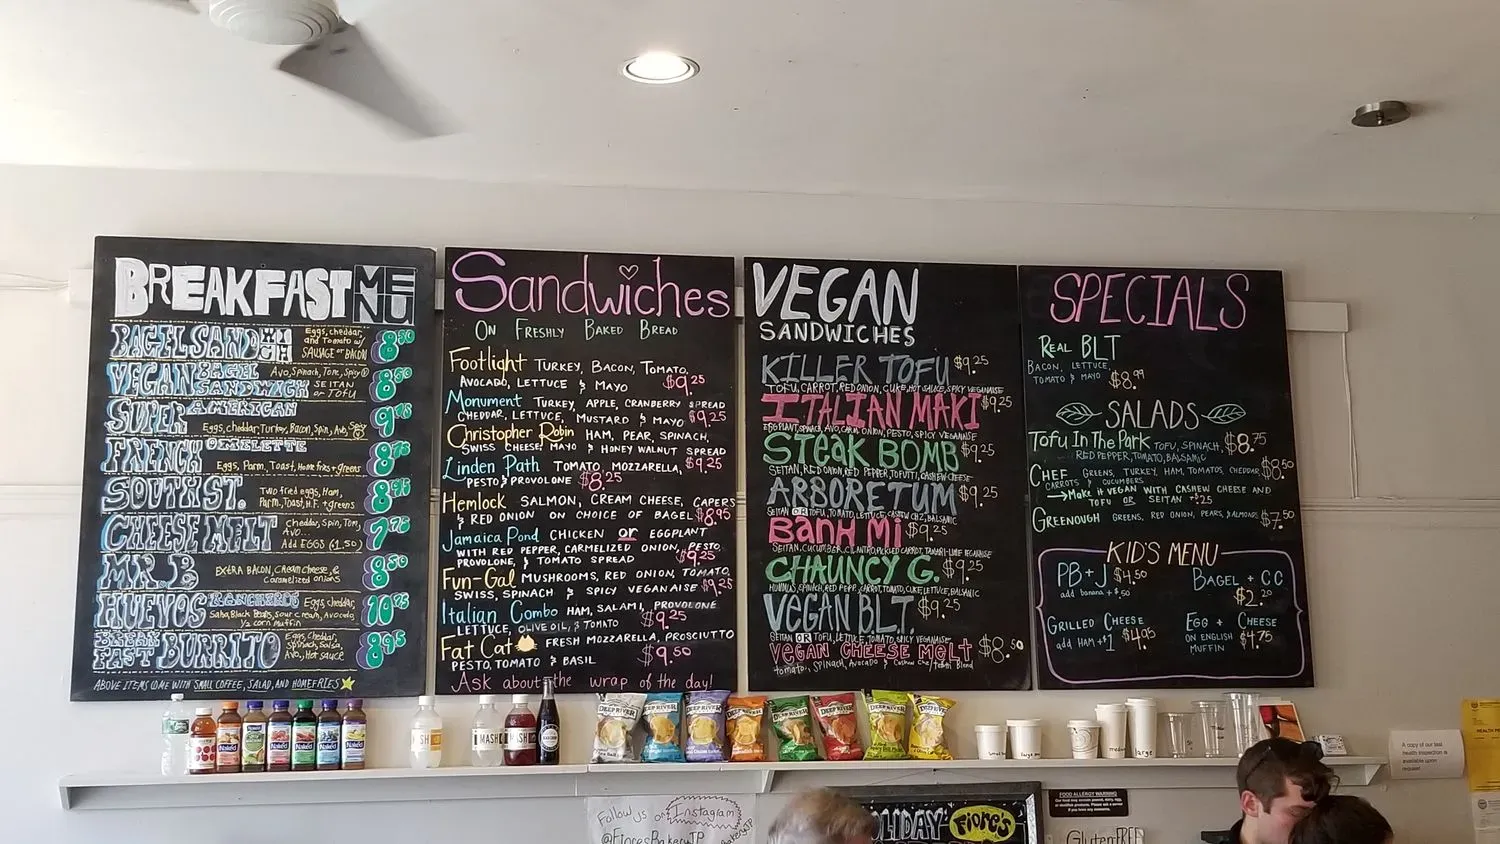 BREAKFAST MENU
BAGEL SANDWICH Eggs, cheddar, and Tomato w/ SAUSAGE or BACON 8.50
VEGAN BAGEL SANDWICH Avo, Spinach, Tom, Spicy SEITAN or TOFU 8.50
SUPER AMERICAN Eggs, cheddar, Turkey, Bacon, Spin, Avo, Spicy 9.75
FRENCH OMELETTE Eggs, Parm, Toast, Home fries + greens 8.75
SOUTH ST. Two fried eggs, Ham, Parm, Toast, H.F. + greens 8.95
CHEESE MELT Cheddar, Spin, Tom, Avo.. Add EGGS (1.50) 7.75
MR. B EXTRA BACON, CREAM Cheese, & Caramelized onions 8.50
HUEVOS RANCHEROS Eggs, cheddar, Salsa, Black Beans, sour cream, Avocado, 1/2 corn muffin 10.75
BREAKFAST BURRITO Eggs, Cheddar, Spinach, Salsa, Avo., Hot sauce 8.95
ABOVE ITEMS COME WITH SMALL COFFEE, SALAD, AND HOMEFRIES
Sandwiches
ON FRESHLY BAKED BREAD
Footlight TURKEY, BACON, TOMATO,
AVOCADO, LETTUCE & MAYO $9.25
Monument TURKEY, APPLE, CRANBERRY SPREAD
CHEDDAR, LETTUCE, MUSTARD & MAYO $9.25
Christopher Robin HAM, PEAR, SPINACH,
SWISS CHEESE, MAYO & HONEY WALNUT SPREAD
$9.25
Linden Path TOMATO, MOZZARELLA,
PESTO & PROVOLONE $8.25
Hemlock SALMON, CREAM CHEESE, CAPERS
& RED ONION ON CHOICE OF BAGEL $8.95
Jamaica Pond CHICKEN or EGGPLANT
WITH RED PEPPER, CARMELIZED ONION, PESTO,
PROVOLONE, & TOMATO SPREAD $9.25
Fun-Gal MUSHROOMS, RED ONION, TOMATO,
SWISS, SPINACH & SPICY VEGANAISE $9.25
Italian Combo HAM, SALAMI, PROVOLONE
LETTUCE, OLIVE OIL, & TOMATO $9.25
Fat Cat FRESH MOZZARELLA, PROSCIUTTO
PESTO, TOMATO & BASIL $9.50
Ask about the wrap of the day!
VEGAN
SANDWICHES
KILLER TOFU $9.25
TOFU, CARROT, RED ONION, CUKE, HOT SAUCE, SPICY VEGANAISE
ITALIAN MAKI $9.25
EGGPLANT, SPINACH, AVO, CARM. ONION, PESTO, SPICY VEGANAISE
STEAK BOMB $9.25
SEITAN, RED ONION, RED PEPPER, TOFUTTI, CASHEW CHEESE
ARBORETUM $9.25
SEITAN OR TOFU, TOMATO, LETTUCE, CASHEW CHZ, BALSAMIC
BANH MI $9.25
SEITAN, CUCUMBER, CILANTRO, PICKLED CARROT, TAMARI-LIME VEGANAISE
CHAUNCY G. $9.25
HUMMUS, SPINACH, RED PEPP, CARROT, TOMATO, CUKE, LETTUCE, BALSAMIC
VEGAN BLT. $9.25
SEITAN OR TOFU, LETTUCE, TOMATO, SPICY VEGANAISE
VEGAN CHEESE MELT $8.50
Tomato, SPINACH, AVOCADO & Cashew Che/tofutti Blend
SPECIALS
REAL BLT
BACON, LETTUCE,
TOMATO & MAYO $8.99
SALADS
TOFU IN THE PARK TOFU, SPINACH, $8.75
RED PEPPER, TOMATO, BALSAMIC
CHEF GREENS, TURKEY, HAM, TOMATOS, CHEDDAR, $8.50
CARROTS & CUCUMBERS
→MAKE it VEGAN WITH CASHEW CHEESE AND
TOFU OR SEITAN +.25
GREENOUGH GREENS, RED ONION, PEARS, & ALMONDS $7.50
KID'S MENU
PB+J $4.50
add banana +$.50
BAGEL + CC
$2.20
GRILLED CHEESE
add HAM +$1 $4.95
EGG + CHEESE
ON ENGLISH
MUFFIN $4.75
Naked
Naked
Naked
Naked
Naked
Naked
MASH
DEEP RIVER
DEEP RIVER
DEEP RIVER
DEEP RIVER
DEEP RIVER
DEEP RIVER
DEEP RIVER
large
A copy of our last
health inspection is
available upon
request
FOOD ALLERGY WARNING
Follow us on Instagram
@FIORESBAKERYJP
HOLIDAY FIORE'S
Gluten FREE